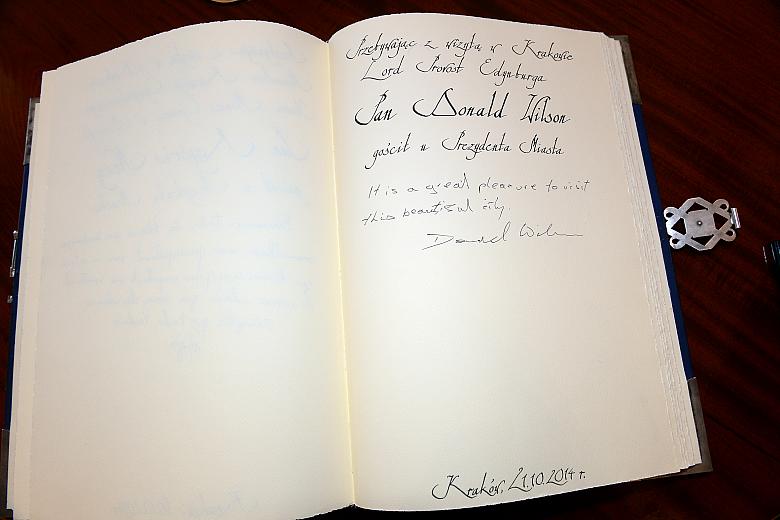 Przebywając z wizytą w Krakowie
Lord Provost Edynburga
Pan Donald Wilson
gościł u Prezydenta Miasta
It is a great pleasure to visit
this beautiful city.
Donald Wilson
Kraków, 21.10.2014 r.